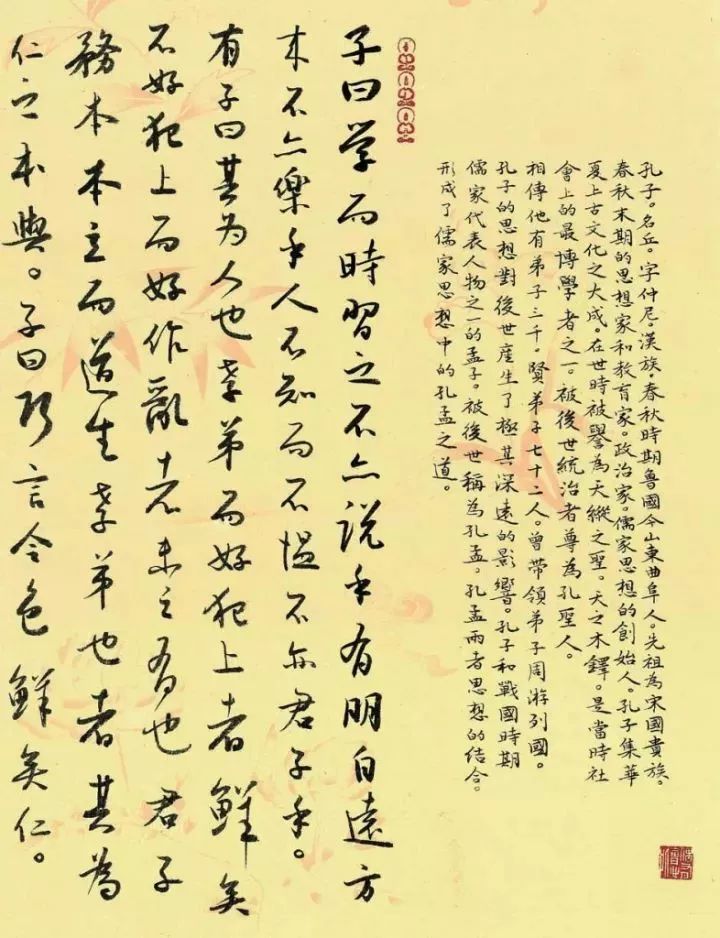 孔子。名丘。字仲尼。漢族。春秋時期魯國今山東曲阜人。先祖為宋國貴族。
春秋末期的思想家和教育家。政治家。儒家思想的創始人。孔子集華
夏上古文化之大成。在世時被譽為天縱之聖。天之木鐸。是當時社
會上的最博學者之一。被後世統治者尊為孔聖人。
相傳他有弟子三千。賢弟子七十二人。曾帶領弟子周游列國。
孔子的思想對後世產生了極其深遠的影響。孔子和戰國時期
儒家代表人物之一的孟子。被後世稱為孔孟。孔孟兩者思想的結合。
形成了儒家思想中的孔孟之道。
子曰学而時習之不亦説乎有明自遠方
来不亦樂乎人不知而不愠不亦君子乎。
有子曰其为人也孝弟而好犯上者鮮矣
不好犯上而好作亂者未之有也君子
務本本立而道生孝弟也者其為
仁之本與。子曰巧言令色鮮矣仁。